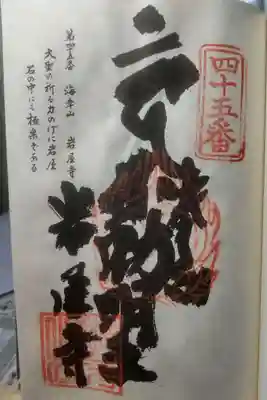 四十五番
動明王
岩屋寺
第四十五番 海岸山 岩屋寺
大聖の祈る力のげに岩屋
石の中にも極楽ぞある